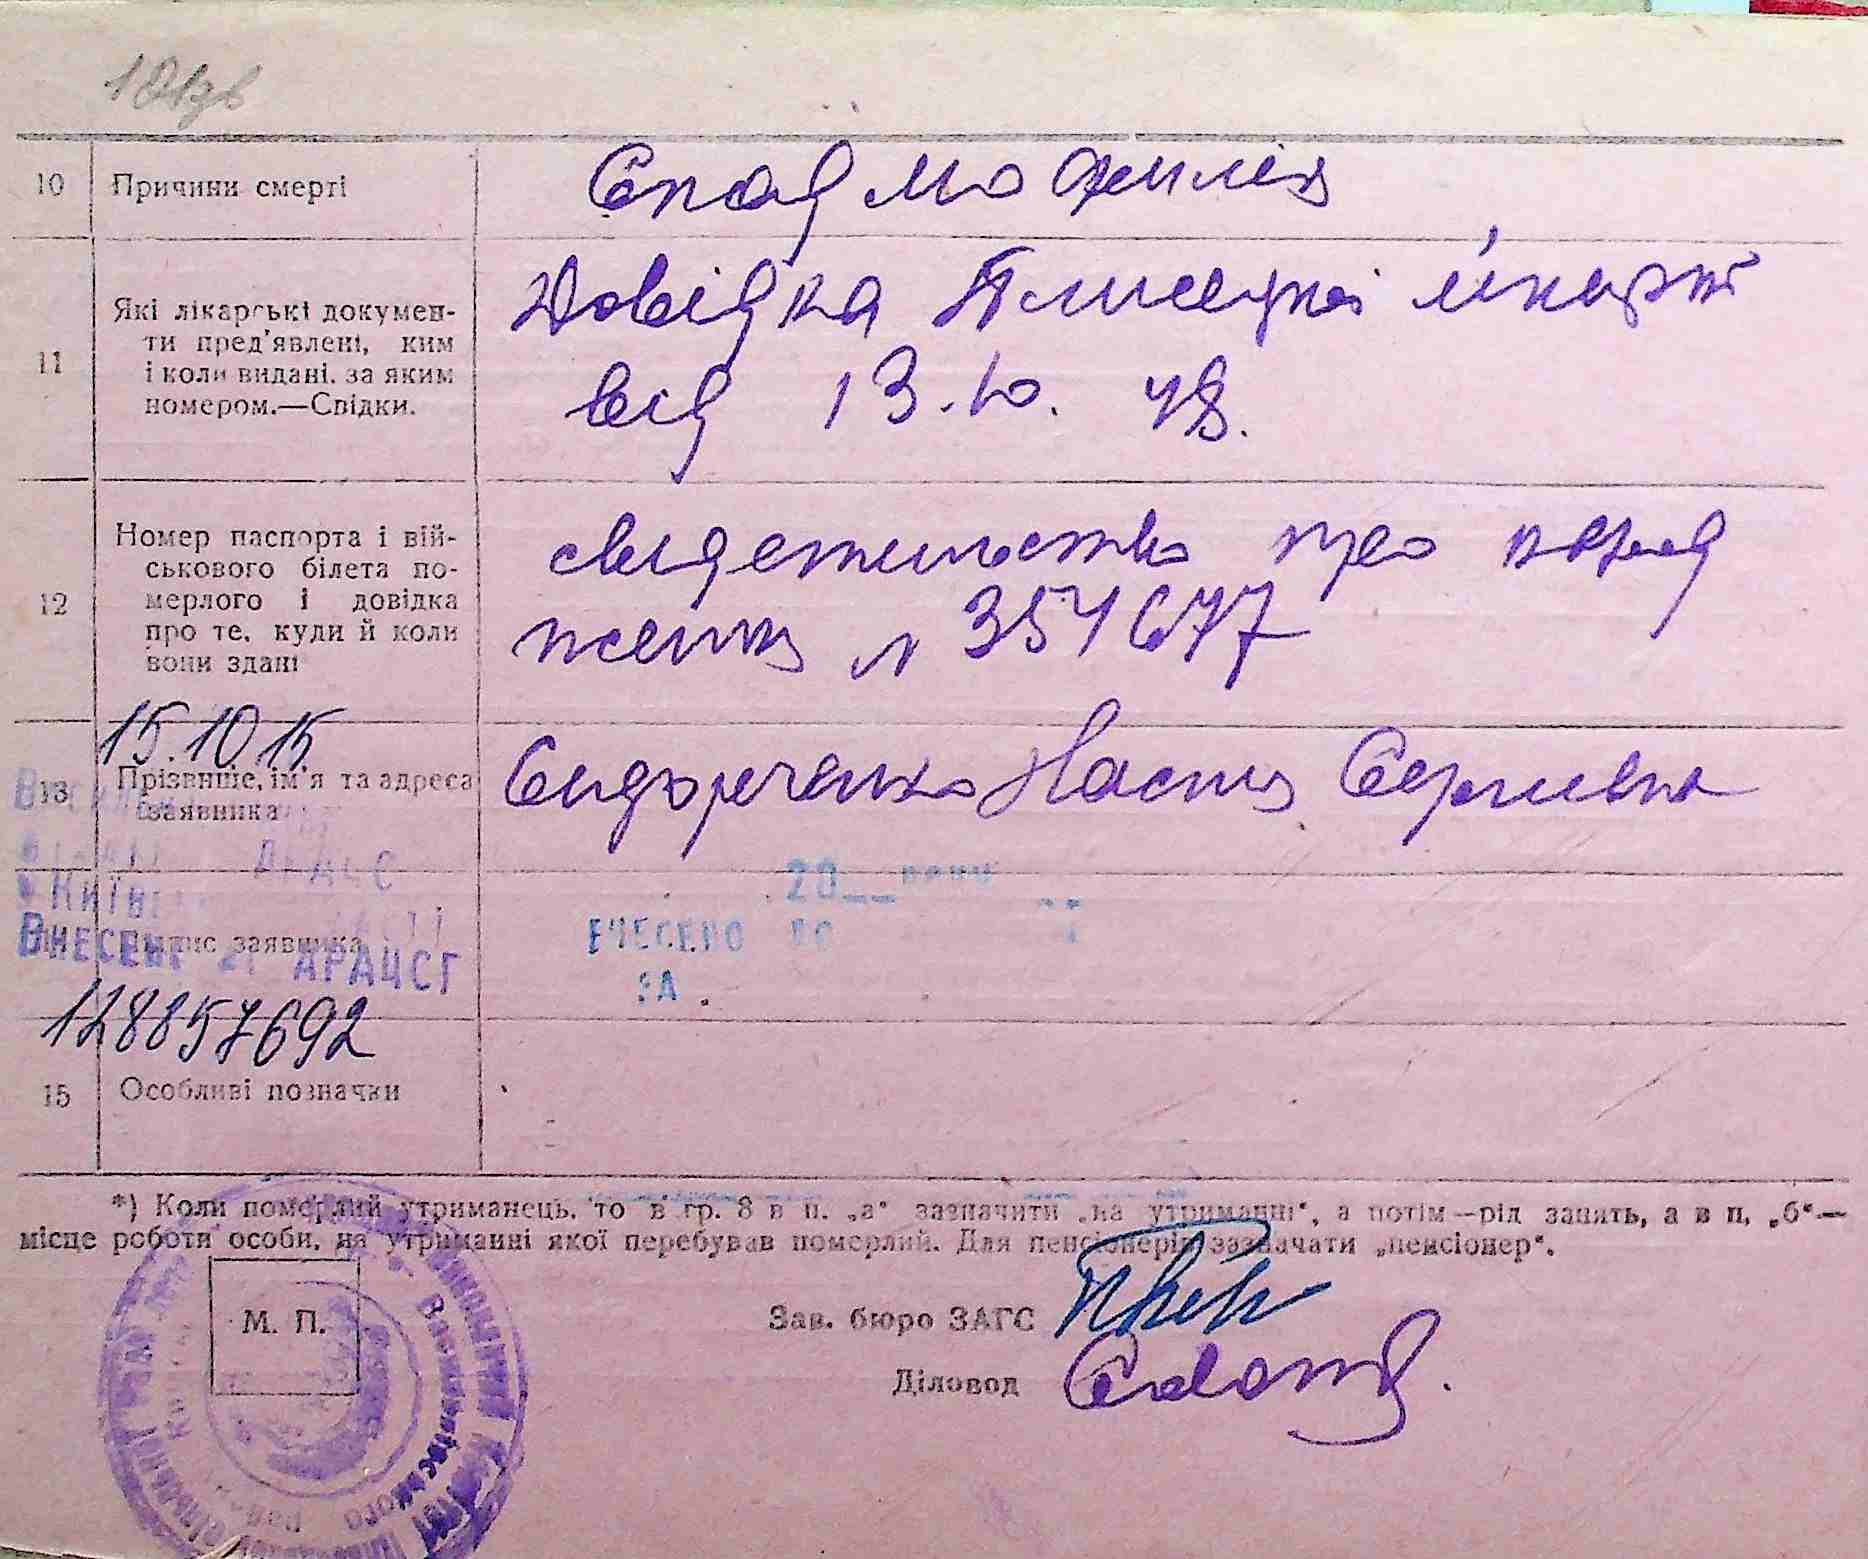 10
Причини смерті
Спазмофилия
11
Які лікарські докумен-
ти пред'явлені, ким
і коли видані, за яким
номером.—Свідки.
Довідка лікарні
від 13.10. 48.
12
Номер паспорта і вій-
ськового білета по-
мерлого і довідка
про те, куди й коли
вони здані
свидетильство про народ
женя № 351677
15.10.15
13
Прізвище, ім'я та адреса
заявника
Сидорченко Настя Сергиевна
ДРАЦС
Київ
20__
ВНЕСЕНО ДО
Підпис заявника
ДРАЦСГ
ЗА
128857692
15
Особливі позначки
*) Коли померлий утриманець, то в гр. 8 в п. „а“ зазначити „на утриманні“, а потім—рід занять, а в п. „б“—
місце роботи особи, на утриманні якої перебував померлий. Для пенсіонерів зазначати „пенсіонер“.
М. П.
Зав. бюро ЗАГС
Діловод